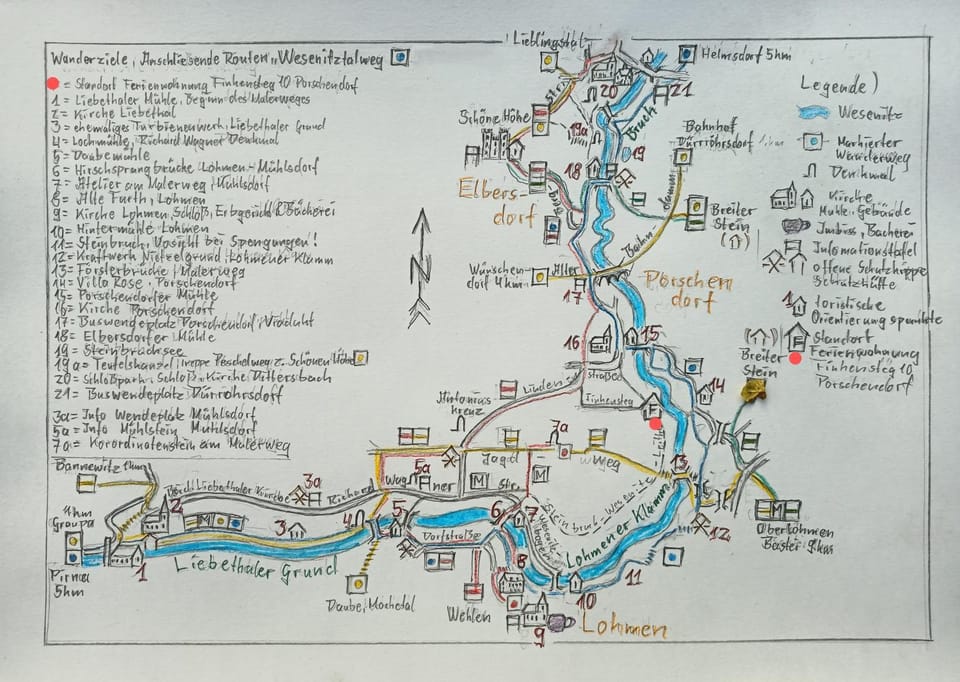 Lieblingstal
Wanderziele, Anschliesende Routen "Wesenitztalweg
= Standort Ferienwohnung Finkensteg 10 Porschendorf
1 = Liebethaler Mühle, Beginn des Malerweges
2 = Kirche Liebethal
3 = ehemaliges Turbienenwerk, Liebethaler Grund
4 = Lochmühle, Richard Wagner Denkmal
5 = Daubemühle
6 = Hirschsprungbrücke Lohmen - Mühlsdorf
7 = Atelier am Malerweg, Mühlsdorf
8 = Alte Furth, Lohmen
9 = Kirche Lohmen, Schloß, Erbgericht, Bäckerei
10 = Hintermühle Lohmen
11 = Steinbruch, Vorsicht bei Sprengungen!
12 = Kraftwerk Niezelgrund, Lohmener Klamm
13 = Försterbrücke, Malerweg
14 = Villa Rose, Porschendorf
15 = Porschendorfer Mühle
16 = Kirche Porschendorf
17 = Buswendeplatz Porschendorf, Viadukt
18 = Elbersdorfer Mühle
19 = Steinbruchsee
19a = Teufelskanzel, Treppe Peschelweg z. Schönen Höhe
20 = Schloßpark, Schloß, Kirche Dittersbach
21 = Buswendeplatz Dürrröhrsdorf
3a = Info Wendeplatz Mühlsdorf
5a = Info Mühlstein Mühlsdorf
7a = Korordinatenstein am Malerweg
Helmsdorf 5km
20
21
Legende
Wesenitz
Markierter Wanderweg
Denkmal
Kirche
Mühle, Gebäude
Imbiss, Bäckerei
Informationstafel
offene Schutzhütte
toristische
Orientierungspunkte
Standort
Ferienwohnung
Finkensteg 10
Porschendorf
Schöne Höhe
19a
Bruch
19
Bahnhof
Dürrröhrsdorf
18
Elbers
dorf
Breiter
Stein
Bahn-
Wünschen
dorf 4km
Alter
17
Porschen
dorf
N
16
15
Straße
Finkensteg
Linden
14
Breiter
Stein
Kreuz
7a
Jagd
Weg
Bannewitz
3a
Richard
Wag
5a
ner
M
Str.
M
13
2
M
3
4
5
6
7
Dorfstraße
Lohmener Klamm
12
Graupa
Pirna
5km
1
Liebethaler Grund
Daube, Mockethal
Wehlen
8
9
10
11
Lohmen